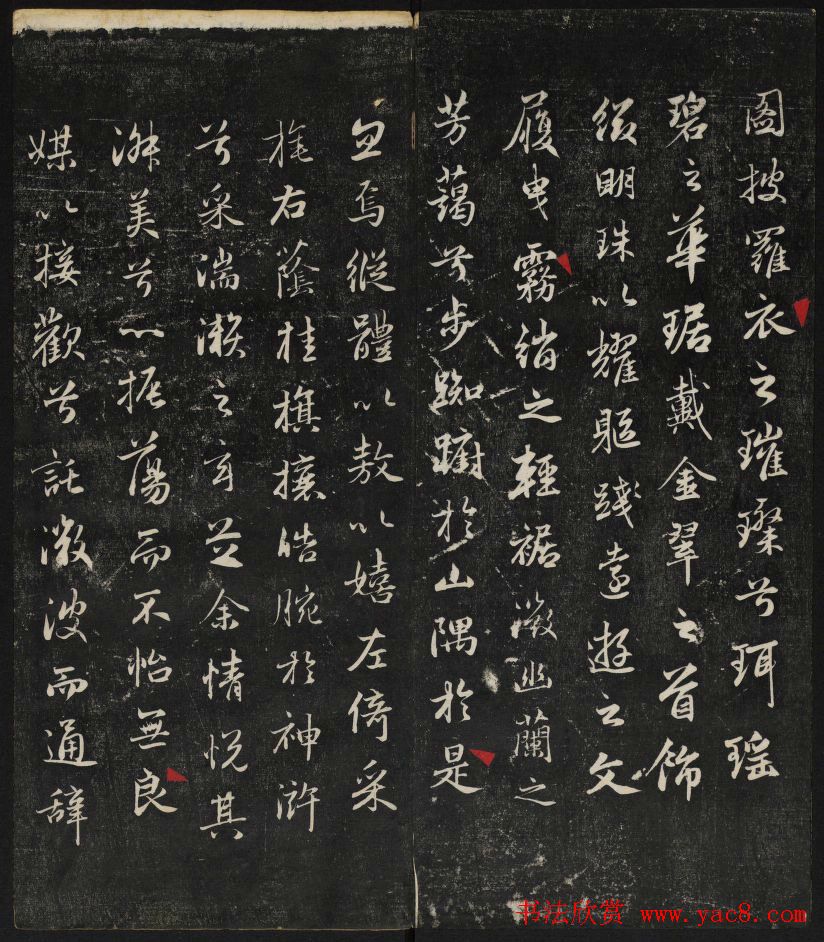 圖披羅衣之璀璨兮珥瑶
碧之華琚戴金翠之首飾
綴明珠以耀軀踐遠遊之文
履曳霧綃之輕裾微幽蘭之
芳藹兮步踟躕於山隅於是
忽焉縱體以敖以嬉左倚采
旄右蔭桂旗攘皓腕於神滸
兮采湍瀨之玄芝余情悅其
淋美兮心振蕩而不怡無良
媒以接歡兮託微波而通辭
书法欣赏 www.yac8.com